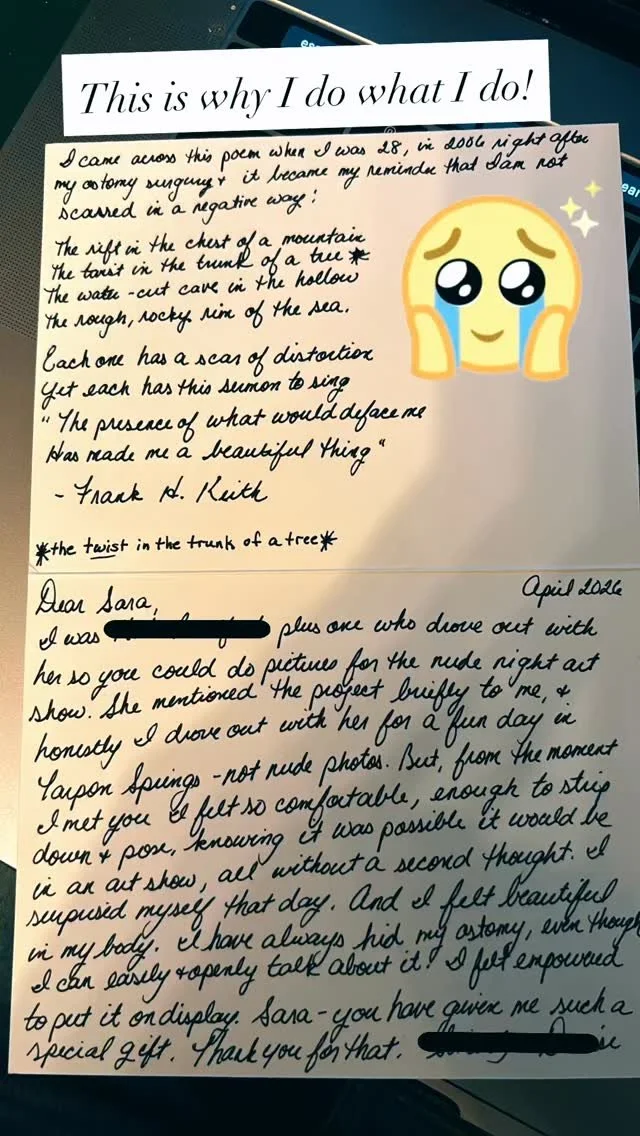 This is why I do what I do!
I came across this poem when I was 28, in 2006 right after
my ostomy surgery & it became my reminder that I am not
scarred in a negative way!
The rift in the chest of a mountain
The twist in the trunk of a tree *
The water-cut cave in the hollow
The rough, rocky rim of the sea.
Each one has a scar of distortion
Yet each has this sermon to sing
"The presence of what would deface me
Has made me a beautiful thing"
- Frank H. Keith
*the twist in the trunk of a tree*
April 2026
Dear Sara,
I was plus one who drove out with
her so you could do pictures for the nude night art
show. She mentioned the project briefly to me, &
honestly I drove out with her for a fun day in
Tarpon Springs - not nude photos. But, from the moment
I met you I felt so comfortable, enough to strip
down & pose, knowing it was possible it would be
in an art show, all without a second thought. I
surprised myself that day. And I felt beautiful
in my body. I have always hid my ostomy, even though
I can easily & openly talk about it! I felt empowered
to put it on display. Sara - you have given me such a
special gift. Thank you for that.